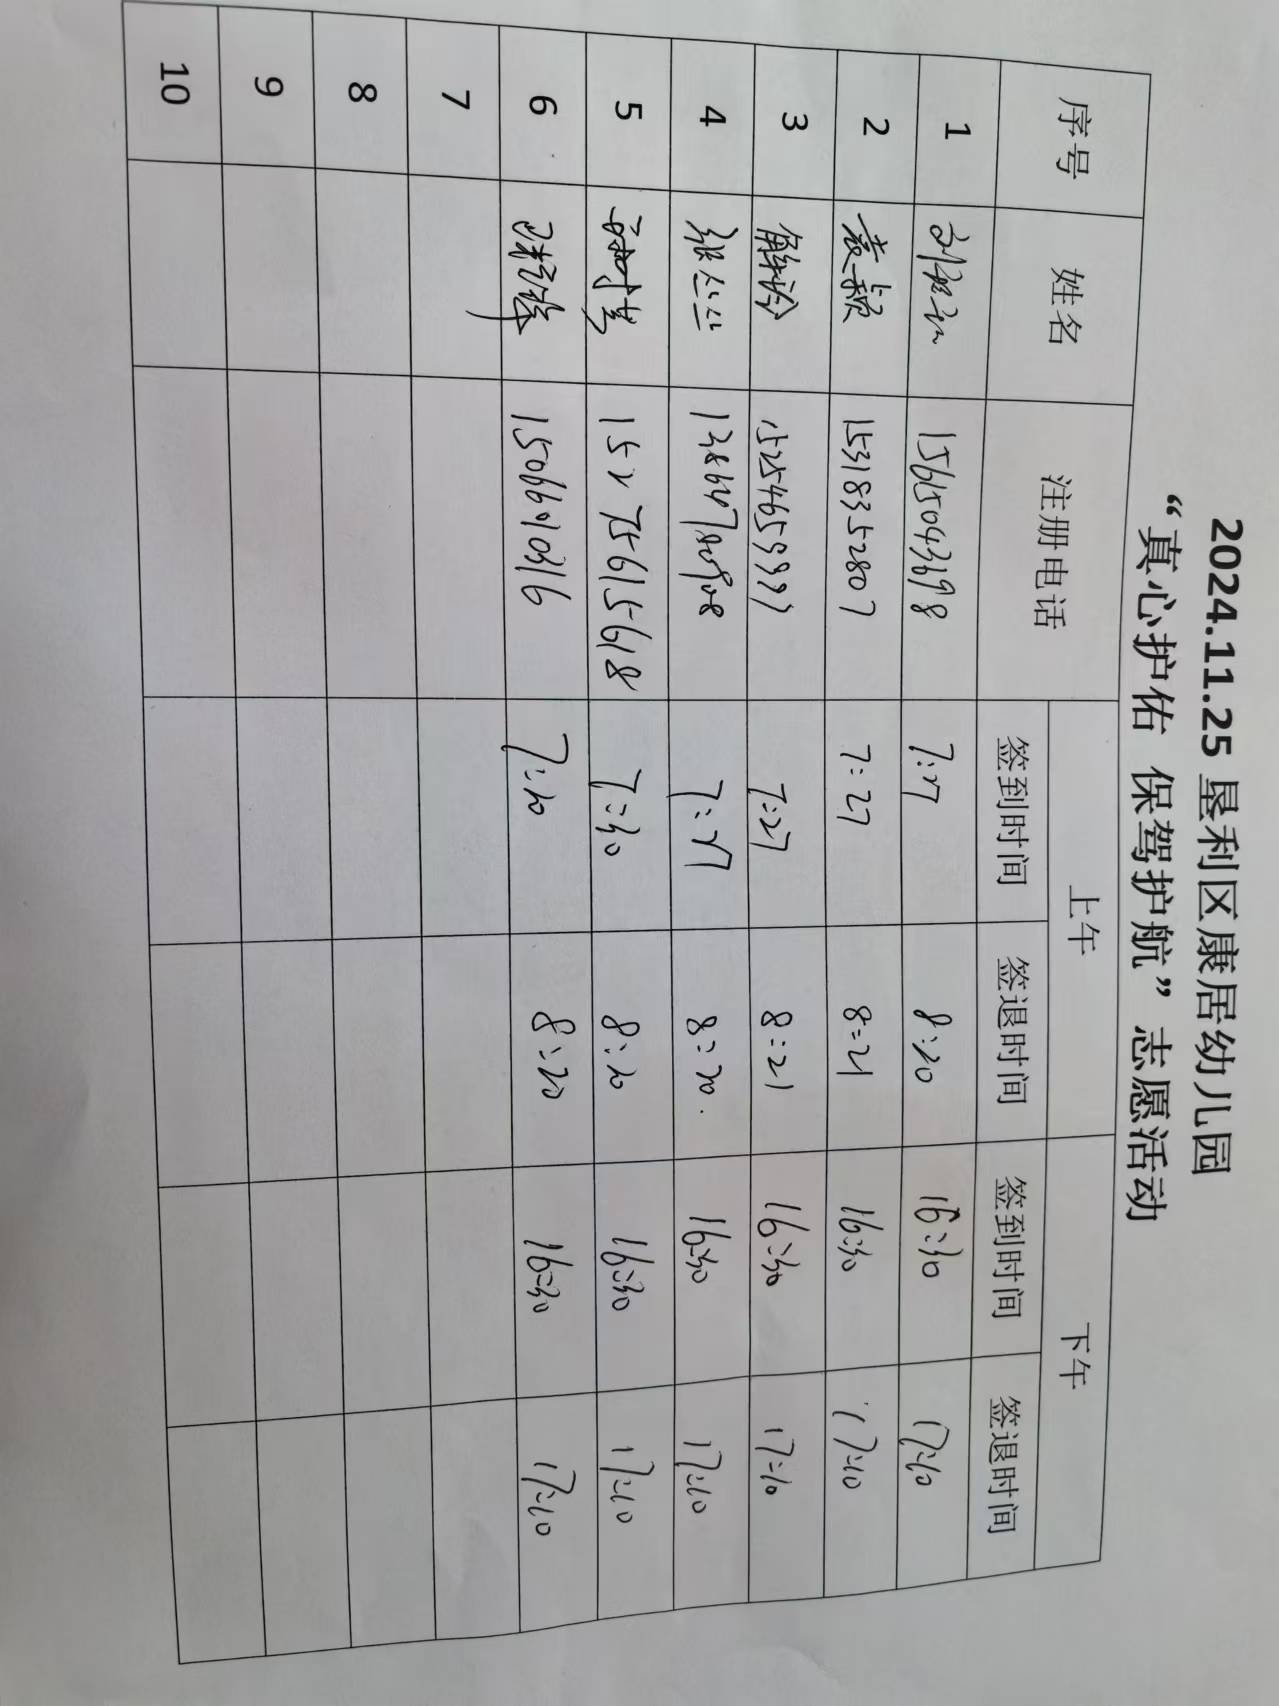 2024.11.25 垦利区康居幼儿园
“真心护佑 保驾护航” 志愿活动
序号 姓名 注册电话 上午 下午
签到时间 签退时间 签到时间 签退时间
1 7:27 8:20 16:30 17:10
2 袁颖 15318352807 7:27 8:21 16:30 17:10
3 解玲 15254659999 7:27 8:21 16:30 17:10
4 张丝丝 7:27 8:20 16:30 17:10
5 15275615618 7:30 8:20 16:30 17:10
6 15066010316 7:20 8:20 16:30 17:10
7
8
9
10